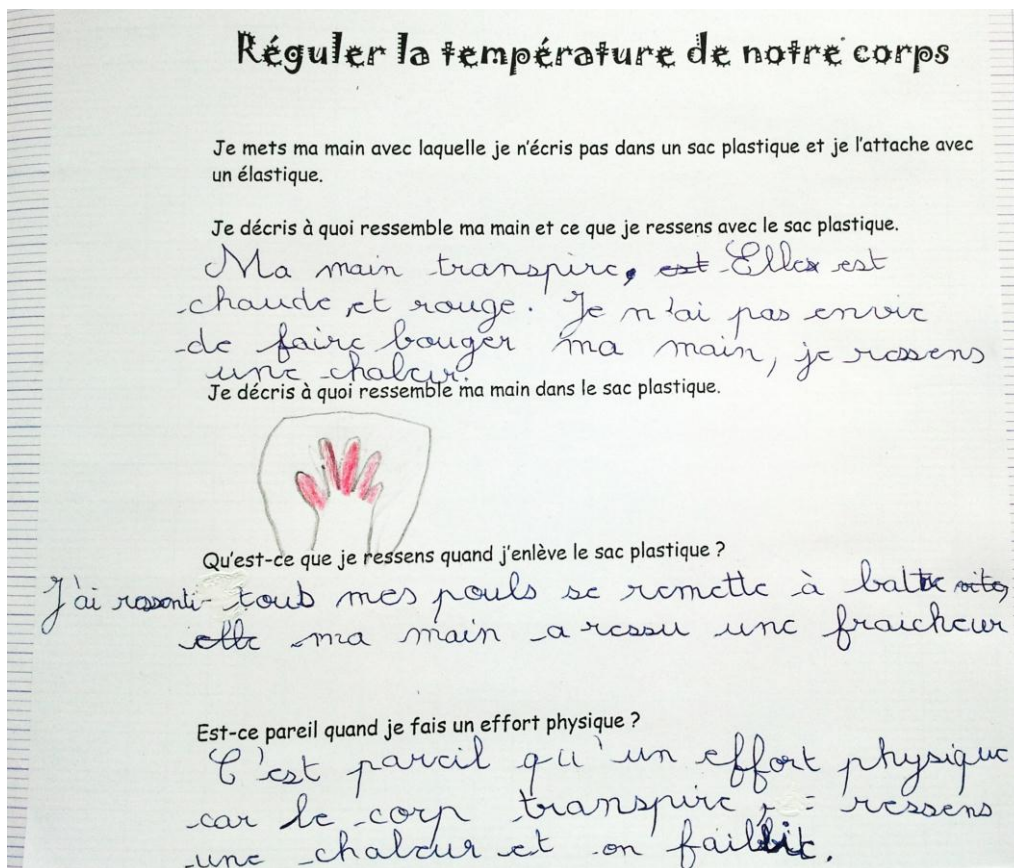 Réguler la température de notre corps
Je mets ma main avec laquelle je n'écris pas dans un sac plastique et je l'attache avec
un élastique.
Je décris à quoi ressemble ma main et ce que je ressens avec le sac plastique.
Ma main transpire, est Elle est
chaude et rouge. Je n'ai pas envie
de faire bouger ma main, je ressens
une chaleur.
Je décris à quoi ressemble ma main dans le sac plastique.
Qu'est-ce que je ressens quand j'enlève le sac plastique ?
J'ai ressenti tout mes pouls se remette à battre vite,
elle ma main a ressu une fraicheur
Est-ce pareil quand je fais un effort physique ?
C'est pareil qu'un effort physique
car le corp transpire, ressens
une chaleur et on